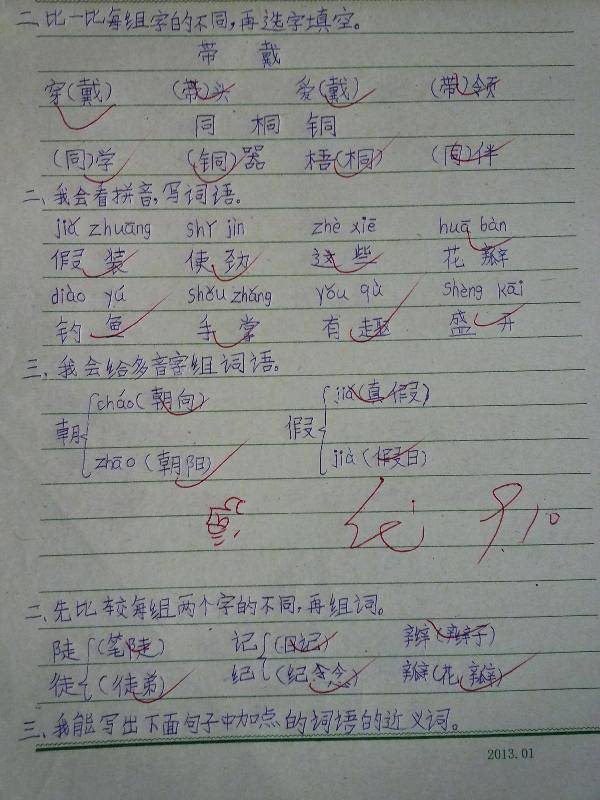 二、比一比每组字的不同,再选字填空。
带 戴
穿(戴) (带)头 爱(戴) (带)领
同 桐 铜
(同)学 (铜)器 梧(桐) (同)伴
二、我会看拼音,写词语。
jiǎ zhuāng shǐ jìn zhè xiē huā bàn
假装 使劲 这些 花瓣
diào yú shǒu zhǎng yǒu qù shèng kāi
钓鱼 手掌 有趣 盛开
三、我会给多音字组词语。
朝 cháo(朝向) 假 jiǎ(真假)
zhāo(朝阳) jià(假日)
9.10
二、先比较每组两个字的不同,再组词。
陡(笔陡) 记(日记) 辫(辫子)
徒(徒弟) 纪(纪念) 瓣(花瓣)
三、我能写出下面句子中加点的词语的近义词。
2013.01